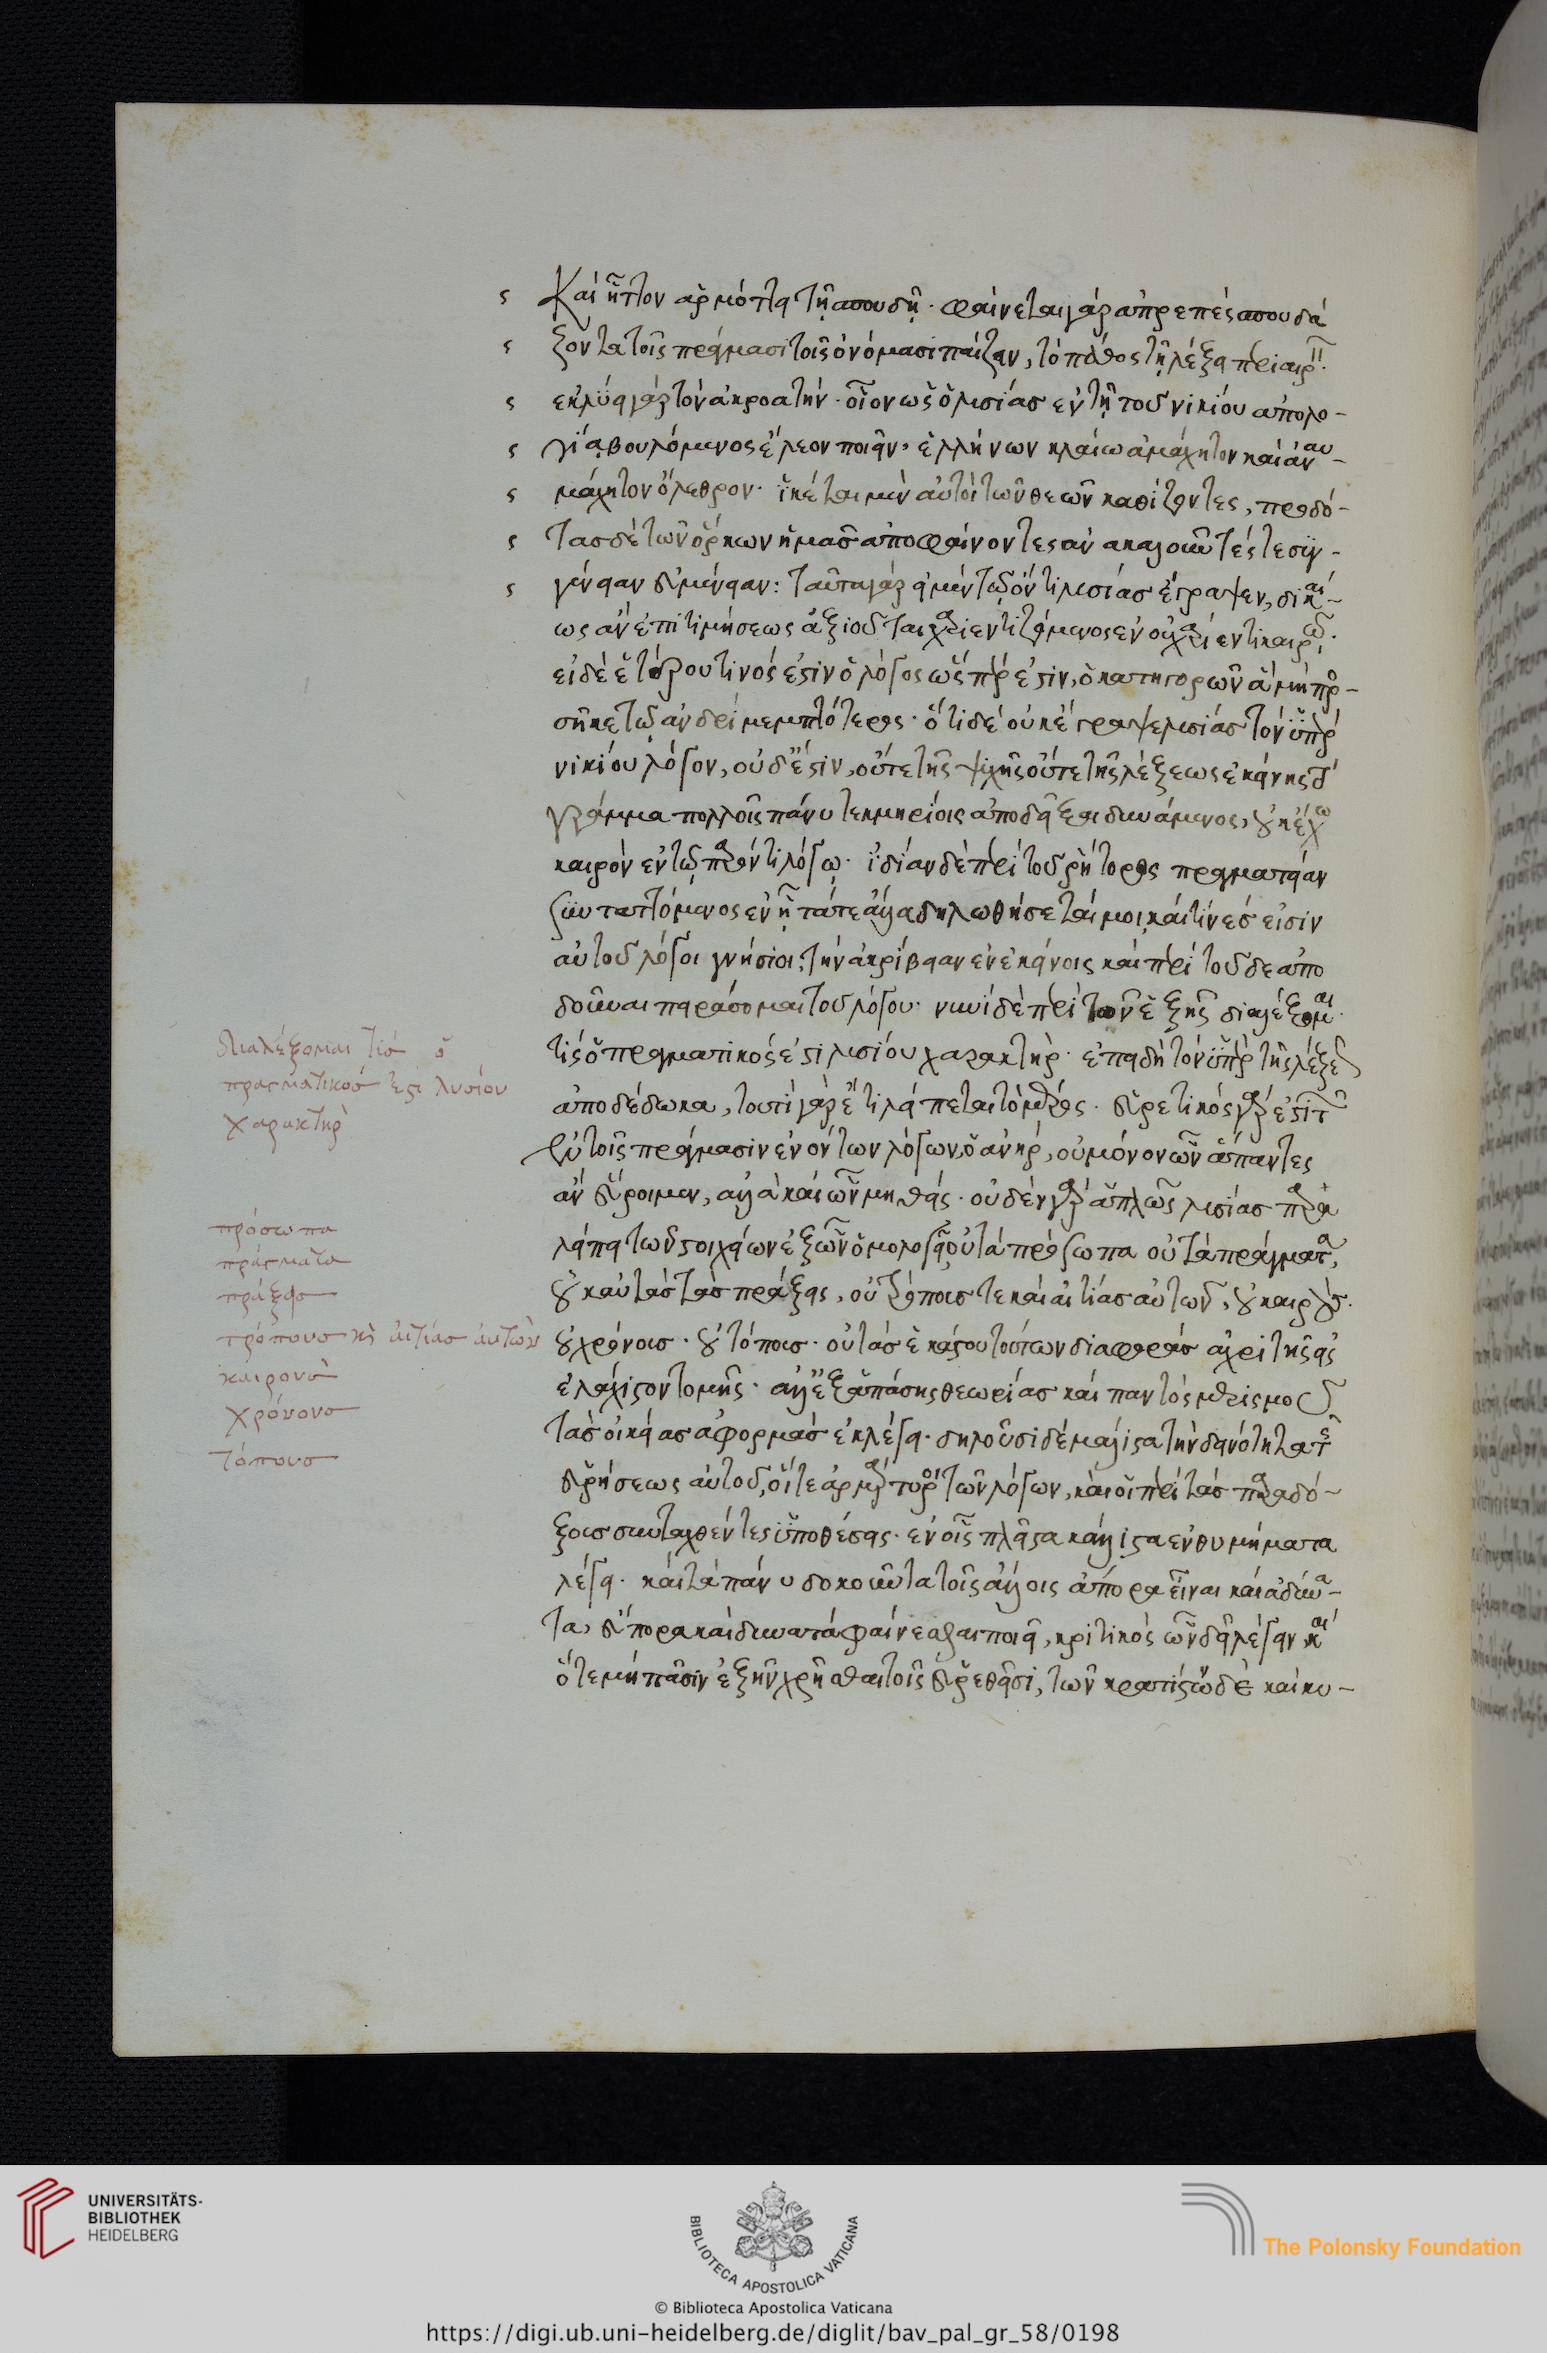 Καὶ ἧττον ἁρμόττει τῇ σπουδῇ· φαίνεται γὰρ ἀπρεπὲς σπουδά
ζοντα τοῖς πράγμασι τοῖς ὀνόμασι παίζειν, τὸ πάθος τῇ λέξει περιαιρ
ἐκλύει γὰρ τὸν ἀκροατήν· οἷον ὡς ὁ λυσίας ἐν τῇ τοῦ νικίου ἀπολο-
γίᾳ βουλόμενος ἔλεον ποιεῖν, ἑλλήνων κλαίω ἀμάχητον καὶ ἀναυ-
μάχητον ὄλεθρον· ἱκέται μὲν αὐτοὶ τῶν θεῶν καθίζοντες, προδό-
τας δὲ τῶν ὅρκων ἡμᾶς ἀποφαίνοντες ἀνακαλοῦντές τε συγ-
γένειαν εὐμένειαν: ταῦτα γὰρ εἰ μὲν τῷ ὄντι λυσίας ἔγραψεν, δικαί-
ως ἂν ἐπιτιμήσεως ἀξιοῦται χαριεντιζόμενος ἐν οὐ χαρίεντι καιρῷ·
εἰ δὲ ἑτέρου τινός ἐστιν ὁ λόγος ὥσπερ ἐστίν, ὁ κατηγορῶν ἃ μὴ προ-
σῆκε τῷ ἀνδρὶ μεμπτότερος· ὅτι δὲ οὐκ ἔγραψε λυσίας τὸν ὑπὲρ
νικίου λόγον, οὐδ' ἔστιν, οὔτε τῆς ψυχῆς οὔτε τῆς λέξεως ἐκείνης τὸ
γράμμα πολλοῖς πάνυ τεκμηρίοις ἀποδεῖξαι δυνάμενος, οὐκ ἔχω
καιρὸν ἐν τῷ παρόντι λόγῳ· ἰδίαν δὲ περὶ τοῦ ῥήτορος πραγματείαν
συνταττόμενος ἐν ᾗ τά τε ἄλλα δηλωθήσεταί μοι, καὶ τίνες εἰσὶν
αὐτοῦ λόγοι γνήσιοι; τὴν ἀκρίβειαν ἐν ἐκείνοις καὶ περὶ τοῦδε ἀπο
δοῦναι πειράσομαι τοῦ λόγου· νυνὶ δὲ περὶ τῶν ἑξῆς διαλέξομαι·
τίς ὁ πραγματικός ἐστι λυσίου χαρακτήρ· ἐπειδὴ τὸν ὑπὲρ τῆς λέξεως
ἀποδέδωκα, τουτὶ γὰρ ἔτι λείπεται τὸ μέρος· εὑρετικὸς γάρ ἐστι τῶν
ἐν τοῖς πράγμασιν ἐνόντων λόγων, ὁ ἀνήρ, οὐ μόνον ὧν ἅπαντες
ἂν εὕροιμεν, ἀλλὰ καὶ ὧν μηθείς· οὐδὲν γὰρ ἁπλῶς λυσίας παρα
λείπει τῶν στοιχείων ἐξ ὧν ὁ μολογεῖ, οὐ τὰ πρόσωπα οὐ τὰ πράγματα,
οὐκ αὐτὰς τὰς πράξεις, οὐ τρόπους τε καὶ αἰτίας αὐτῶν, οὐ καιροὺς·
οὐ χρόνους· οὐ τόπους· οὐ τὰς ἑκάστου τούτων διαφορὰς ἄχρι τῆς εἰς
ἐλάχιστον τομῆς· ἀλλ' ἐξ ἁπάσης θεωρίας καὶ παντὸς μερισμοῦ
τὰς οἰκείας ἀφορμὰς ἐκλέγει· δηλοῦσι δὲ μάλιστα τὴν δεινότητα τῆς
εὑρήσεως αὐτοῦ, οἵ τε ἀμάρτυροι τῶν λόγων, καὶ οἱ περὶ τὰς παραδό-
ξους συνταχθέντες ὑποθέσεις· ἐν οἷς πλεῖστα κάλλιστα ἐνθυμήματα
λέγει· καὶ τὰ πάνυ δοκοῦντα τοῖς ἄλλοις ἄπορα εἶναι καὶ ἀδύνα-
τα, εὔπορα καὶ δυνατὰ φαίνεσθαι ποιεῖ, κριτικὸς ὧν δεῖ λέγειν, καὶ
ὅτε μὴ πᾶσιν ἐξῆν χρῆσθαι τοῖς εὑρεθεῖσι, τῶν κρατίστων δὲ καὶ κυ-
διαλέξομαι τίσ ὁ
πραγματικοσ ἐστι λυσίου
χαρακτηρ
πρόσωπα
πράγματα
πράξεισ
τρόπουσ κὴ ἀιτίασ ἀυτῶν
καιρουσ
χρόνουσ
τόπουσ
UNIVERSITÄTS-
BIBLIOTHEK
HEIDELBERG
BIBLIOTECA APOSTOLICA VATICANA
© Biblioteca Apostolica Vaticana
The Polonsky Foundation
https://digi.ub.uni-heidelberg.de/diglit/bav_pal_gr_58/0198